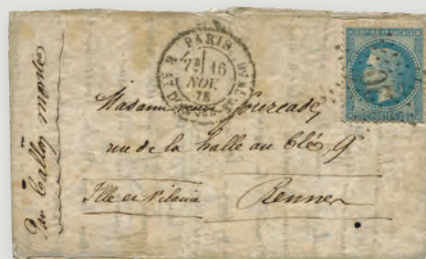 Par Ballon monté
PARIS
7E 16
NOV.
Madame
rue de la halle au blé 9
Ille et Vilaine
Rennes